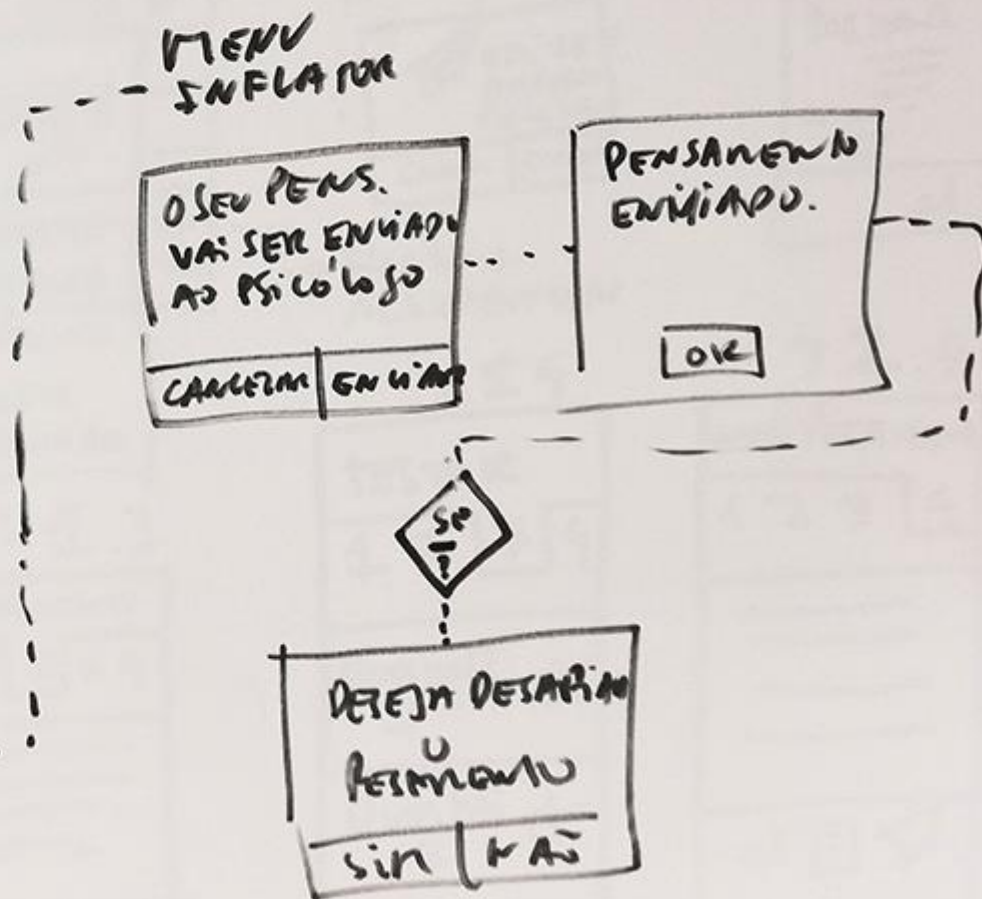 MENU
INFLATOR
O SEU PENS.
VAI SER ENVIADO
AO PSICÓLOGO
CANCELAR ENVIAR
PENSAMENTO
ENVIADO.
OK
SE
?
DESEJA DESAFIAR
O
PENSAMENTO
SIM NÃO